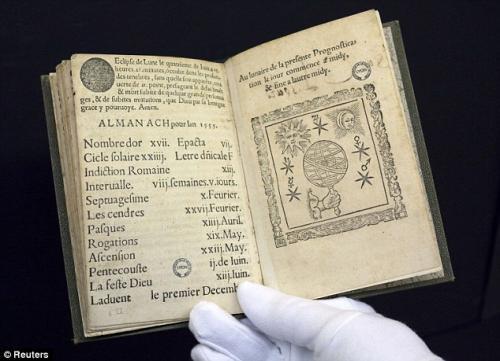 Eclipse de Lune le quatrieme de
heures
des tenebres, sans quelle soit
& mort subite de quelque
& de subites mutations, que Dieu par sa benigne
grace y pouruoye. Amen.
ALMANACH pour lan 1555.
Nombre dor xvii. Epacta vij.
Cicle solaire xxiij. Letre dñicale F
Indiction Romaine xiij.
Interualle. viij.semaines.v.iours.
Septuagesime x.Feurier.
Les cendres xxvij.Feurier.
Pasques xiiij.Auril.
Rogations xix.May.
Ascension xxiij.May.
Pentecouste ij.de Iuin.
La feste Dieu xiij.Iuin.
Laduent le premier Decemb
Au lunaire de la presente Prognostica-
tion le iour commence a midy,
& fine a lautre midy.
© Reuters